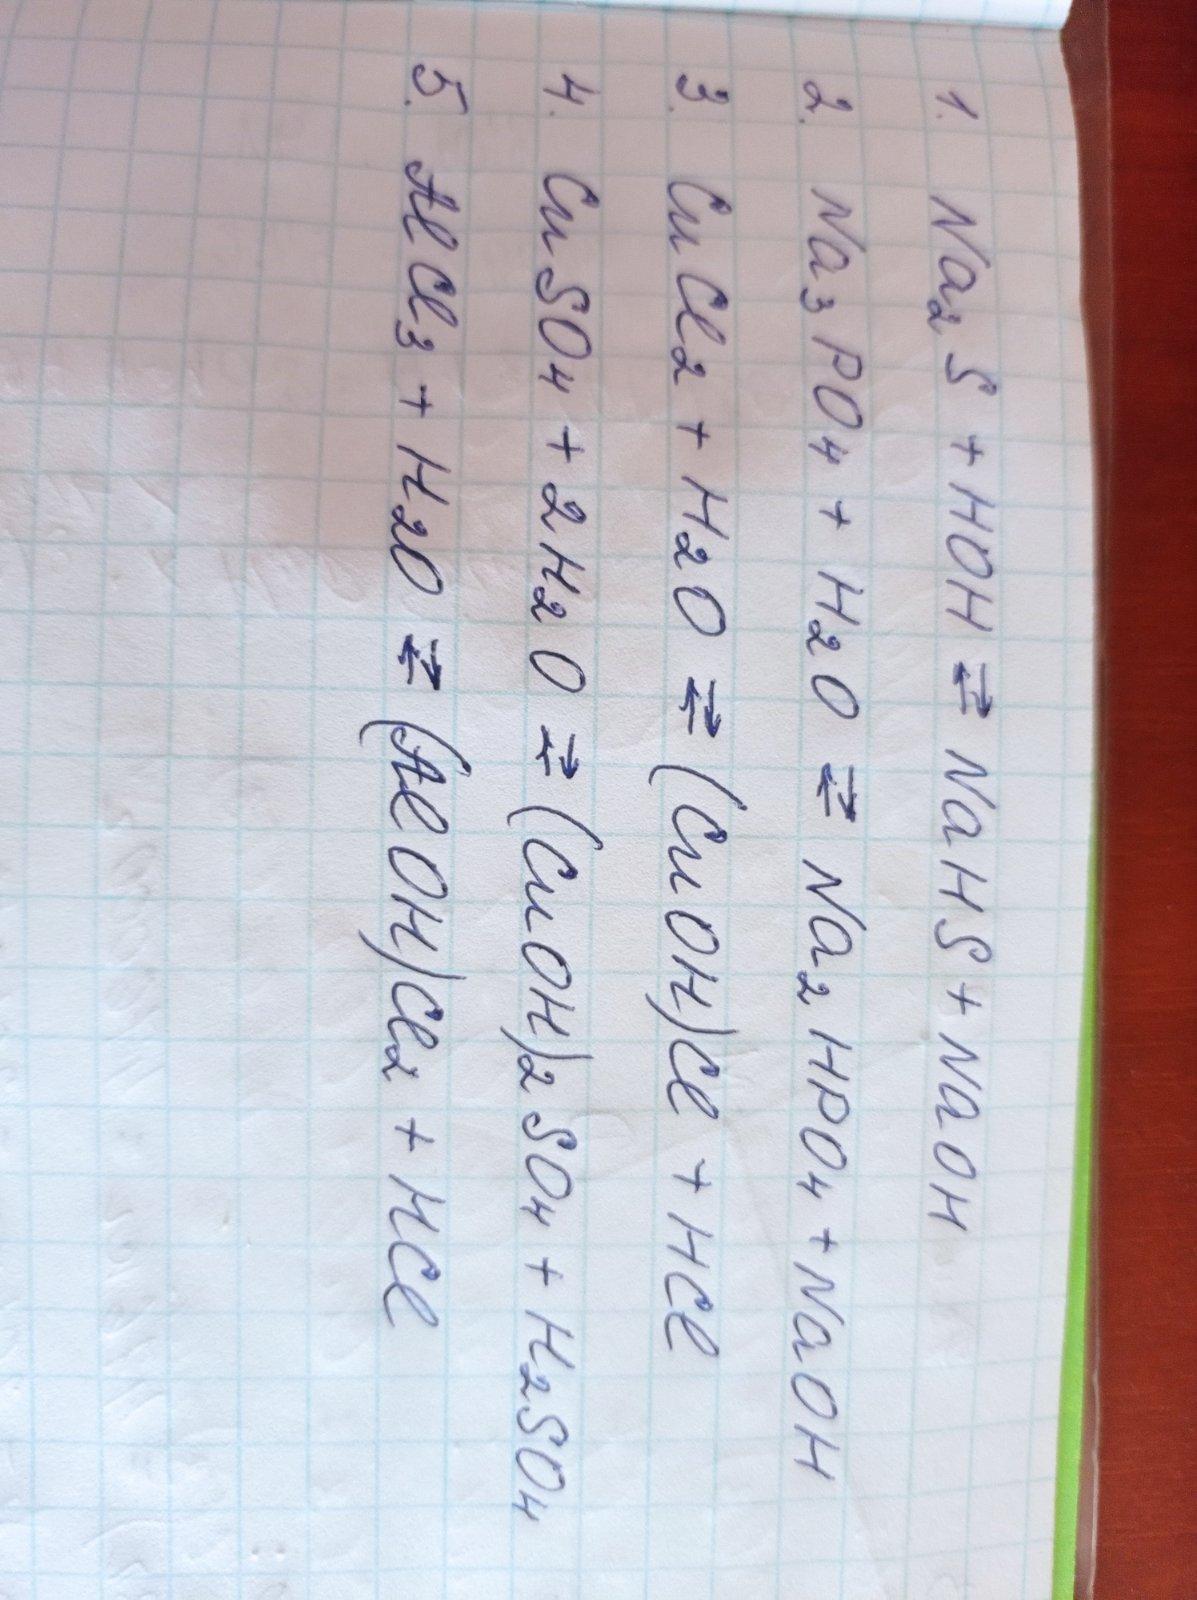 1. Na₂S + HOH ⇄ NaHS + NaOH
2. Na₃PO₄ + H₂O ⇄ Na₂HPO₄ + NaOH
3. CuCl₂ + H₂O ⇄ (CuOH)Cl + HCl
4. CuSO₄ + 2H₂O ⇄ (CuOH)₂SO₄ + H₂SO₄
5. AlCl₃ + H₂O ⇄ (AlOH)Cl₂ + HCl